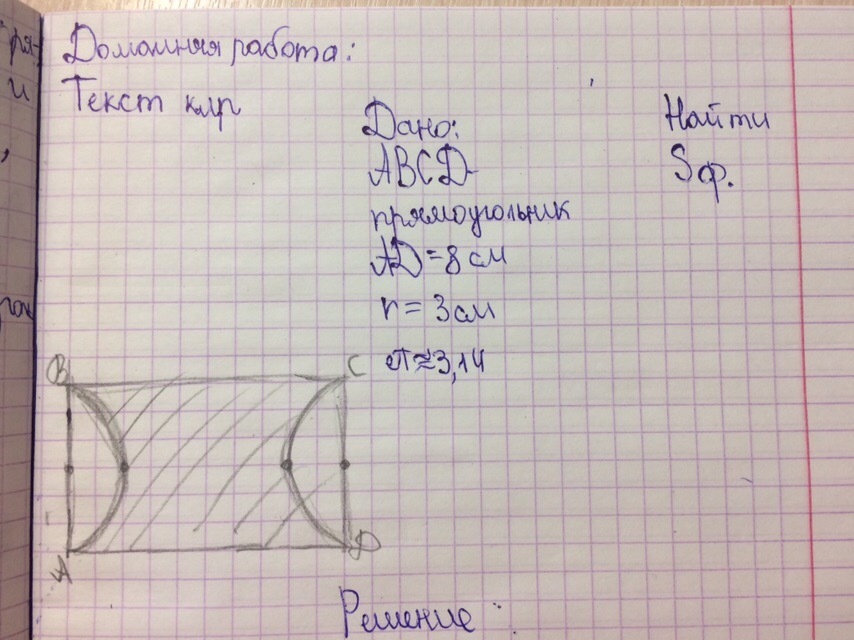 Домашняя работа:
Текст кмр
Дано:
ABCD-
прямоугольник
AD=8 см
r = 3 см
π≈3,14
Найти
Sф.
B
C
A
D
Решение:
ря-
и
,